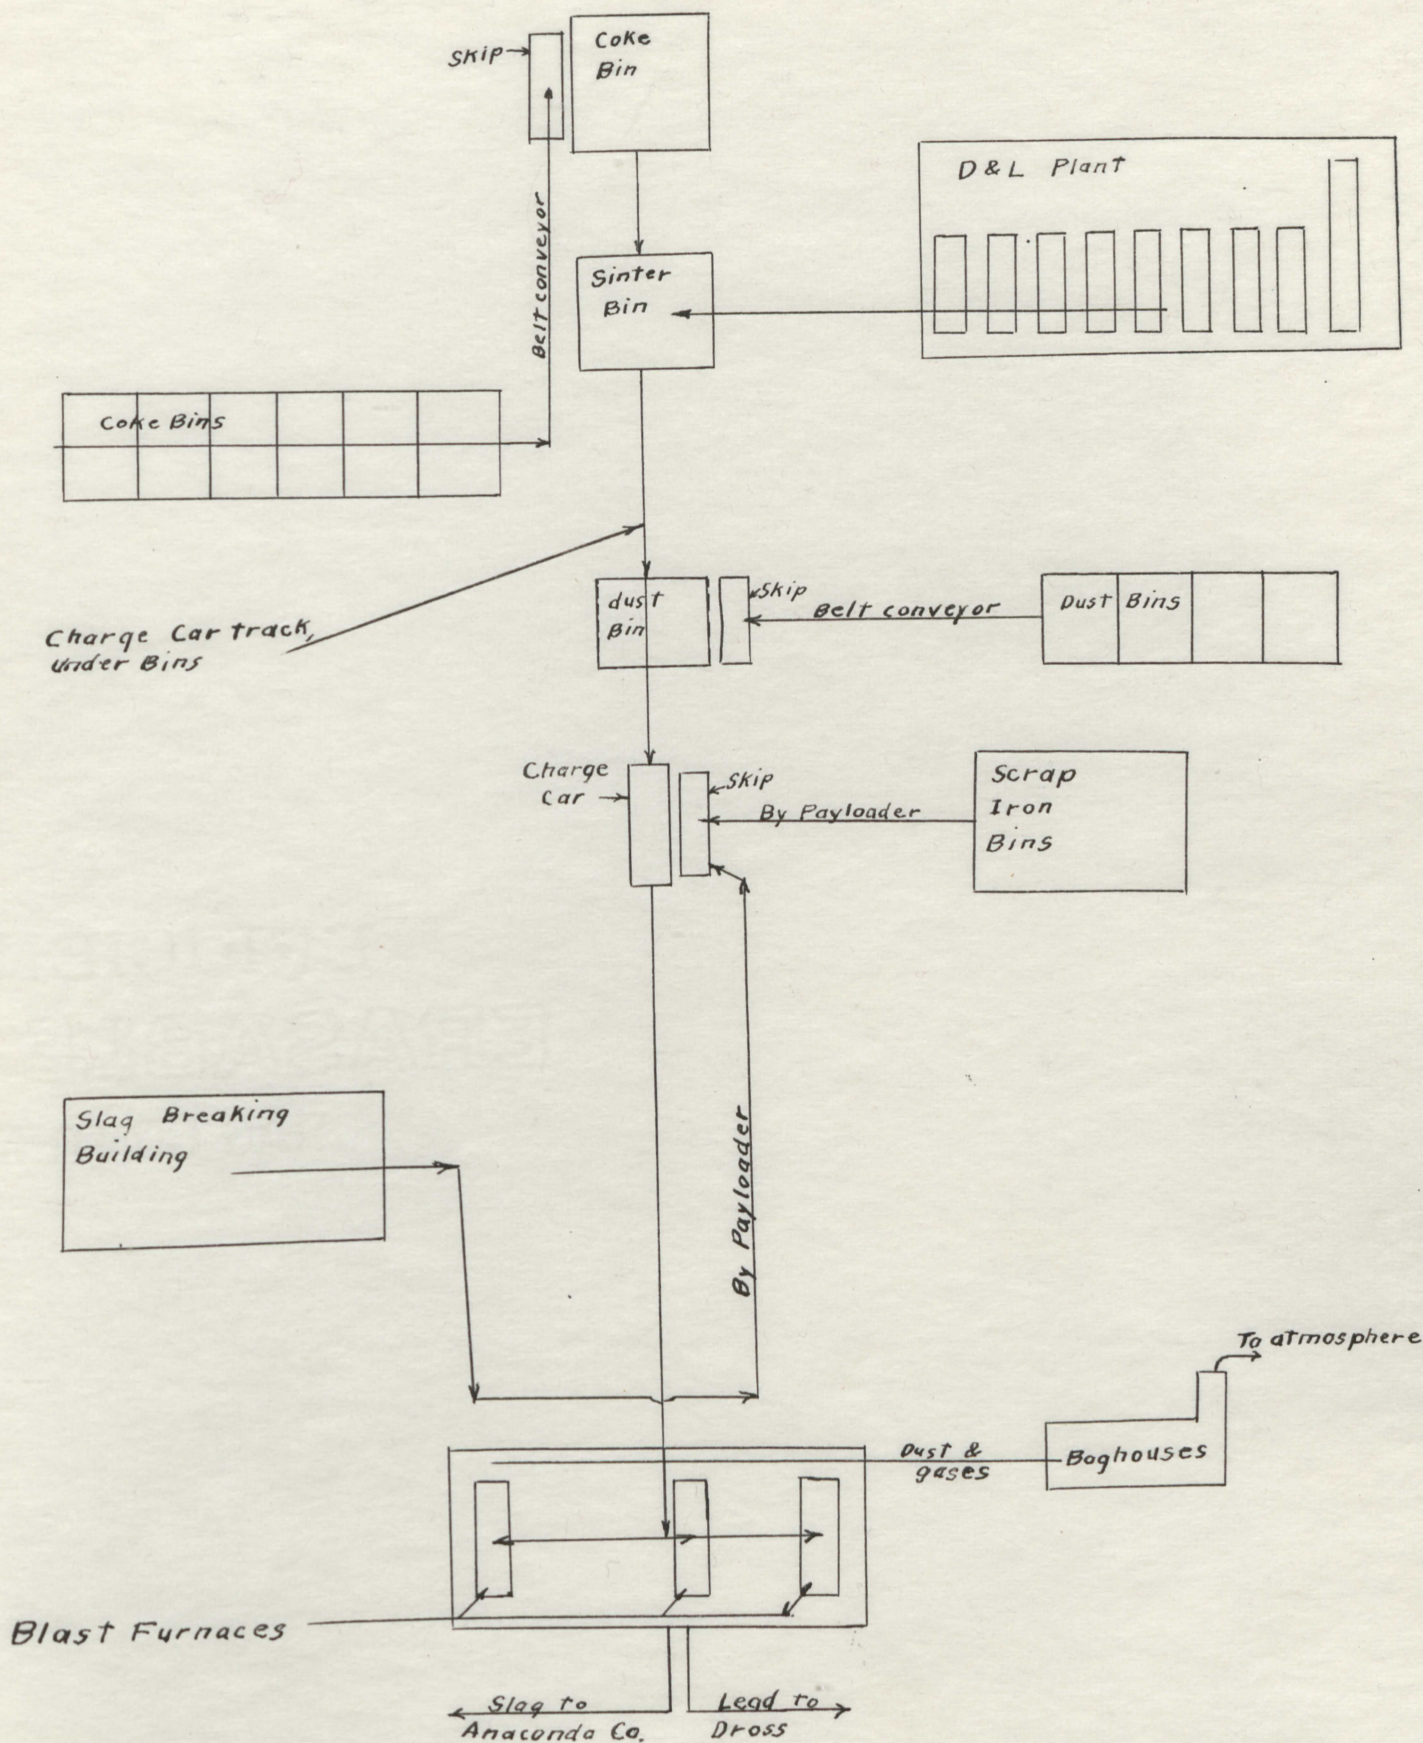 Coke
Bin
Skip
D & L Plant
Belt conveyor
Sinter
Bin
Coke Bins
Charge Car track,
under Bins
dust
Bin
Skip
Belt conveyor
Dust Bins
Charge
Car
Skip
By Payloader
Scrap
Iron
Bins
Slag Breaking
Building
By Payloader
To atmosphere
Dust &
gases
Baghouses
Blast Furnaces
Slag to
Anaconda Co.
Lead to
Dross